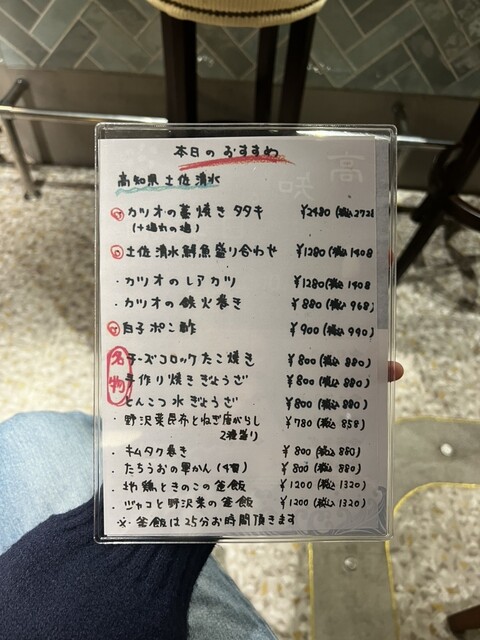 本日のおすすめ
高知県土佐清水
カツオの藁焼きタタキ ¥2480(税込2728
(+塩れの場)
土佐清水鮮魚盛り合わせ ¥1280(税込1408
・カツオのレアカツ ¥1280(税込1408
・カツオの鉄火巻き ¥880(税込968)
白子ポン酢 ¥900(税込990)
名物
チーズコロックたこ焼き ¥800(税込880)
手作り焼きぎょうざ ¥800(税込880)
とんこつ水ぎょうざ ¥800(税込880)
・野沢菜昆布とねぎ唐がらし ¥780(税込858)
2種盛り
・キムタク巻き ¥800(税込880)
・たちうおの串かん(4貫) ¥800(税込880)
・地鶏ときのこの釜飯 ¥1200(税込1320)
・ジャコと野沢菜の釜飯 ¥1200(税込1320)
※釜飯は25分お時間頂きます
高知